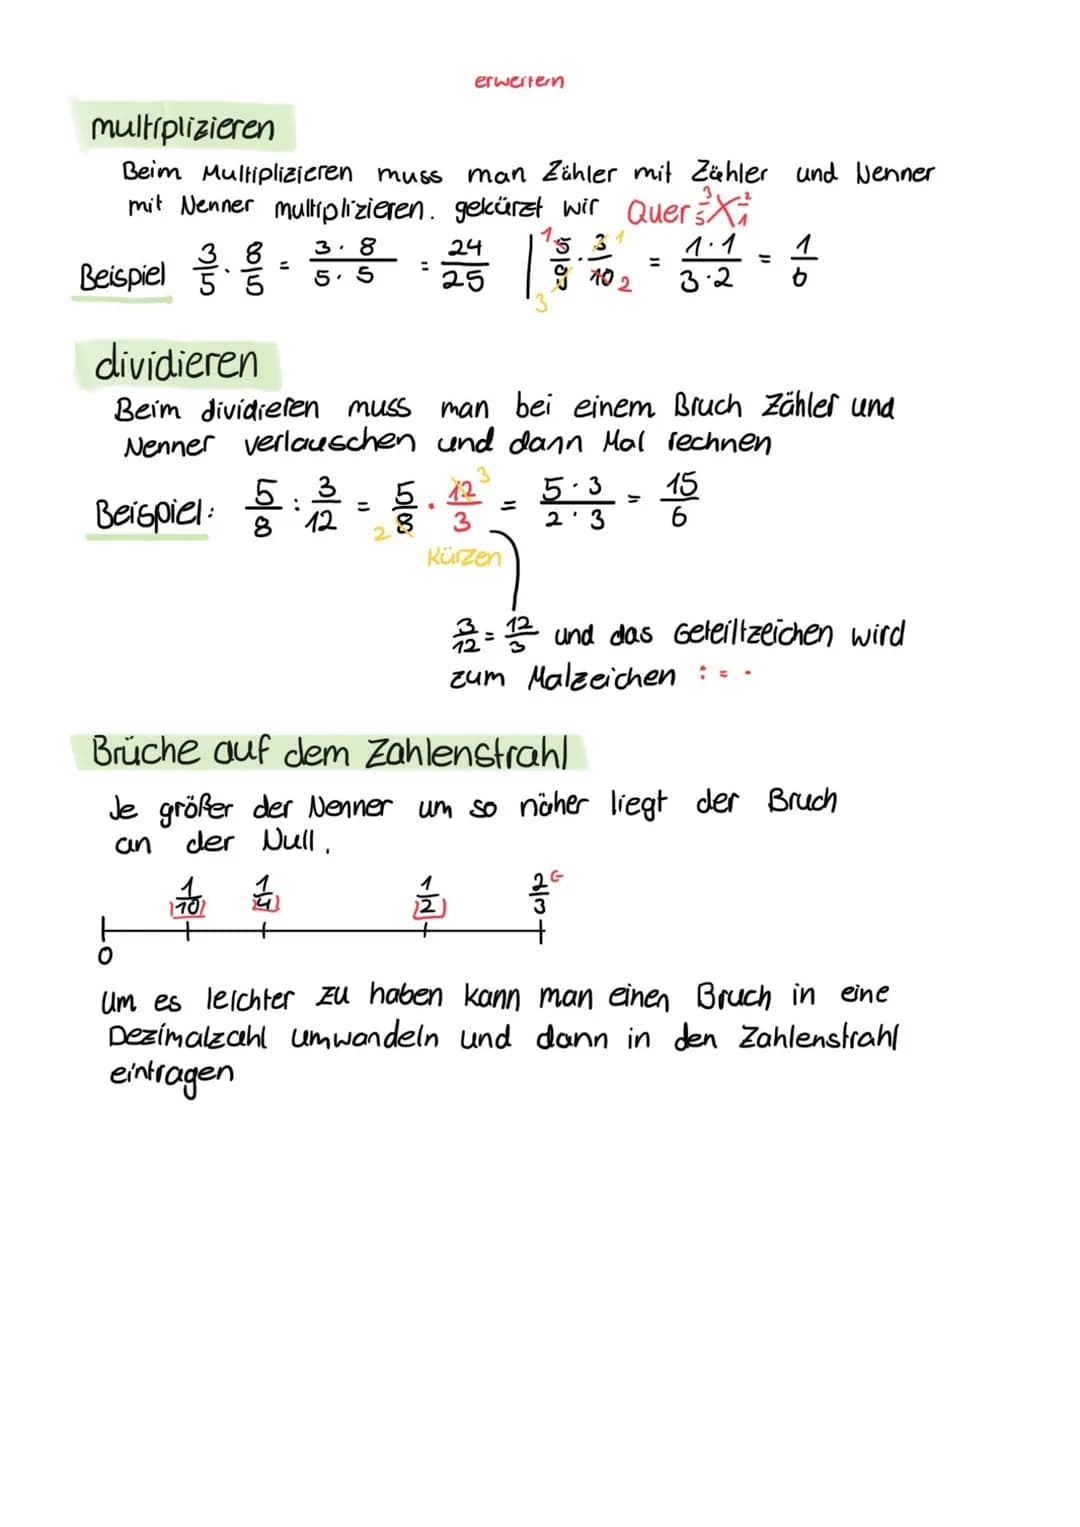 erweitern
multiplizieren
Beim Multiplizieren muss man Zähler mit Zähler und Nenner
mit Nenner multiplizieren. gekürzt wir Quer 3/5 X 2/1
Beispiel 3/5 · 8/5 = 3·8/5·5 = 24/25 | 1 5/9 3 · 3 1/10 2 = 1·1/3·2 = 1/6
dividieren
Beim dividieren muss man bei einem Bruch Zähler und
Nenner vertauschen und dann Mal rechnen
Beispiel: 5/8 : 3/12 = 5/8 2 · 12 3/3 = 5·3/2·3 = 15/6
Kürzen
3/12 = 12/3 und das Geteiltzeichen wird
zum Malzeichen : = ·
Brüche auf dem Zahlenstrahl
Je größer der Nenner um so näher liegt der Bruch
an der Null.
1/10 1/4 1/2 2/3
0
Um es leichter zu haben kann man einen Bruch in eine
Dezimalzahl umwandeln und dann in den Zahlenstrahl
eintragen